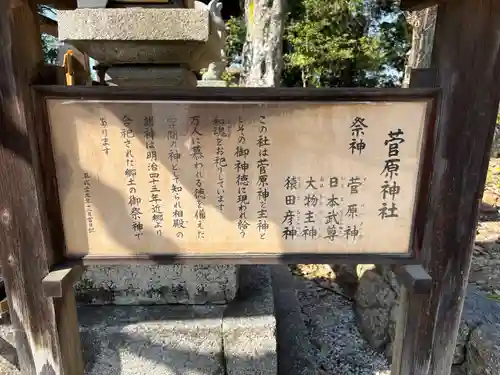 菅原神社
祭神
菅原神
日本武尊
大物主神
猿田彦神
この社は菅原神と主神
とその御神徳に現われ給う
和魂をお祀りしています
万人に慕われる徳を備えた
学問の神として知られ相殿の
諸神は明治四十三年近郷より
合祀された郷土の御祭神で
あります